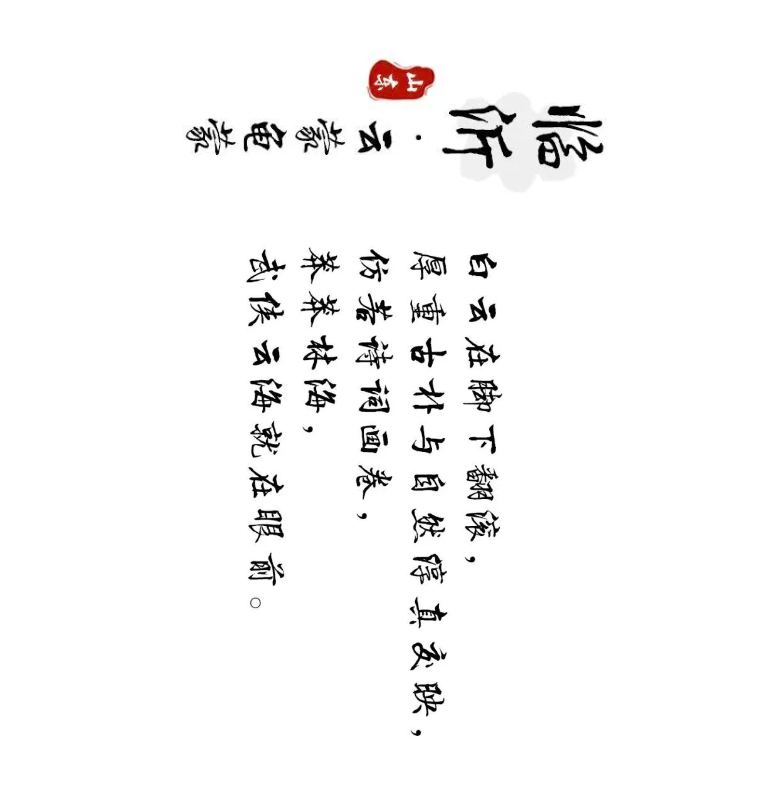 临沂·云蒙龟蒙
山东
白云在脚下翻滚，
厚重古朴与自然淳真交映，
仿若诗词画卷，
莽莽林海，
武侠云海就在眼前。